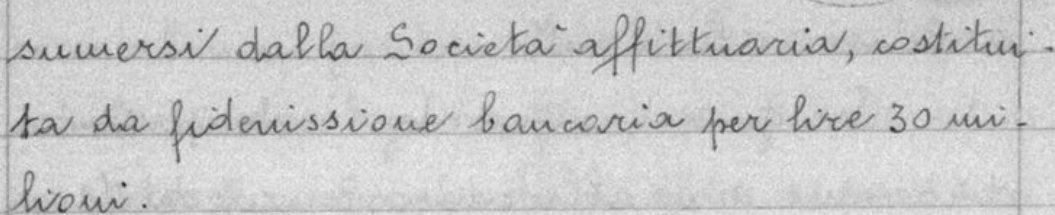 sumersi dalla Società affittuaria, costitui-
ta da fidenissione bancaria per lire 30 mi-
lioni.